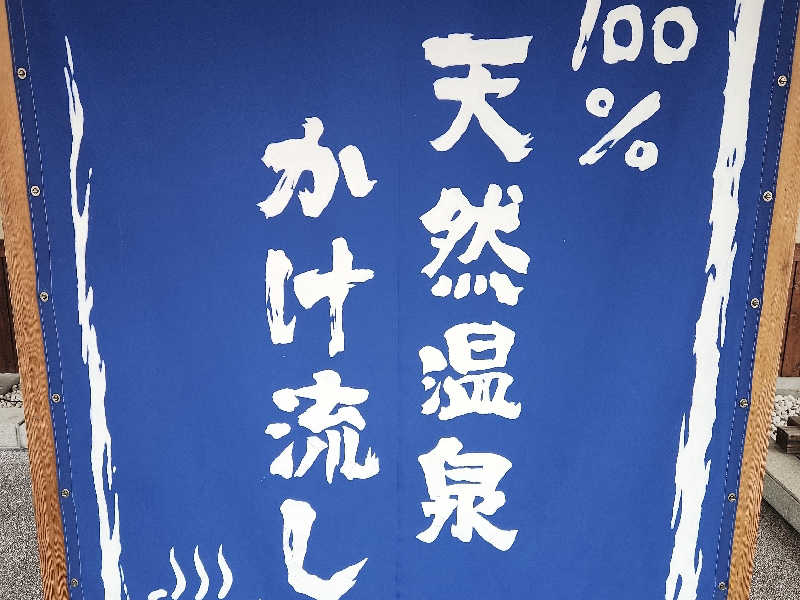 100%
天然温泉
かけ流し